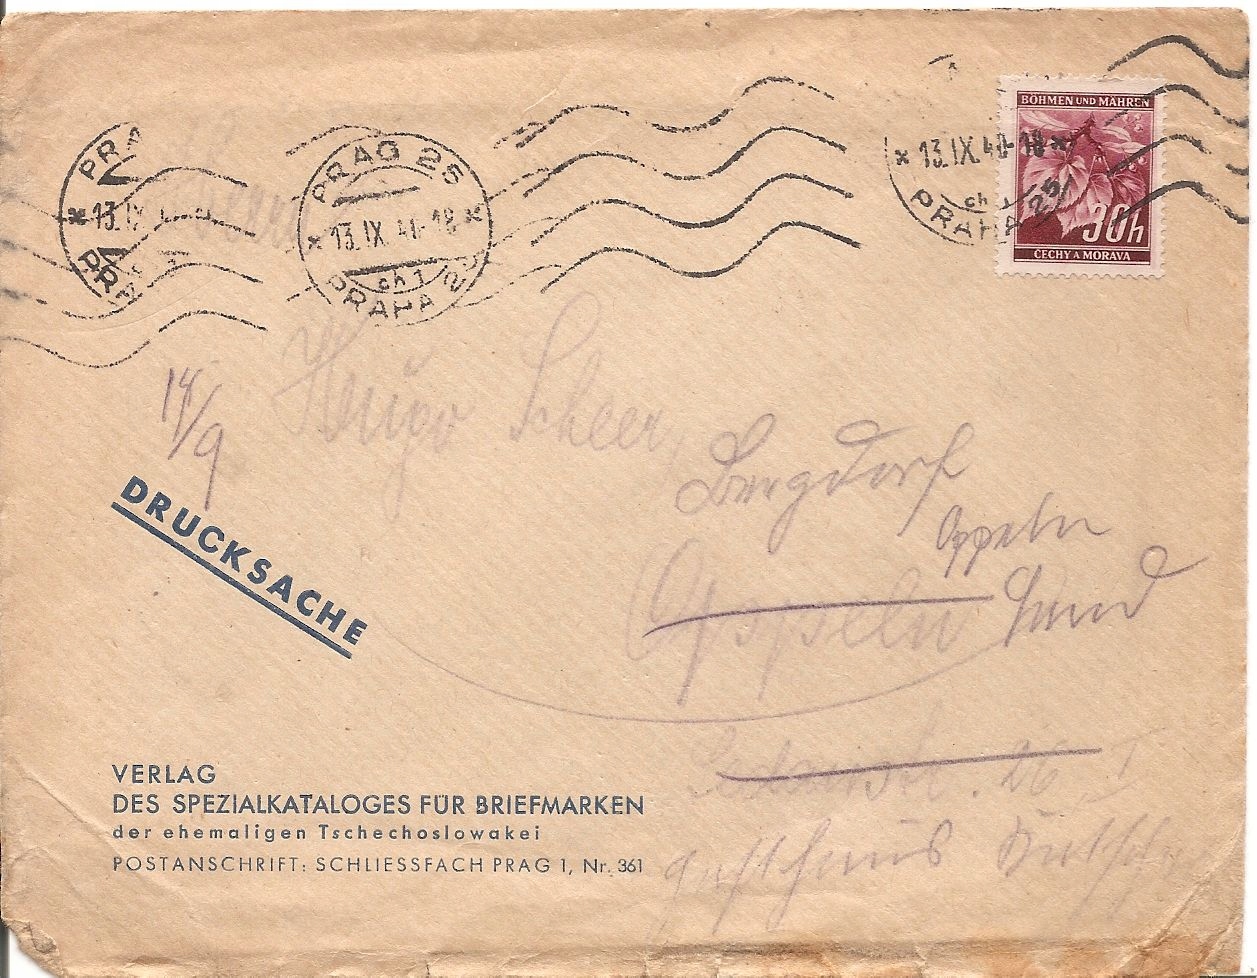 PRAG 25
13.IX.40-18
ch 1
PRAHA 25
BÖHMEN UND MÄHREN
30h
ČECHY A MORAVA
PRA
13.IX
PRA
* 13.IX.40-18 *
ch 1
PRAHA 25
Herrn
14/9
Hugo Scheer,
Oppeln
Land
Oppeln
DRUCKSACHE
Sedanstr. 26 I
VERLAG
DES SPEZIALKATALOGES FÜR BRIEFMARKEN
der ehemaligen Tschechoslowakei
POSTANSCHRIFT: SCHLIESSFACH PRAG 1, Nr. 361
Gasthaus